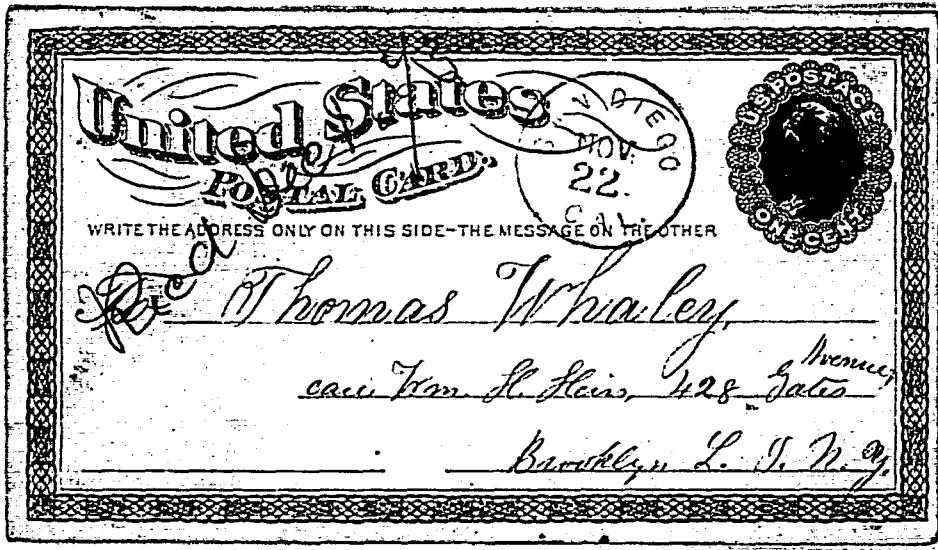 United States
POSTAL CARD.
SAN DIEGO
NOV.
22.
CAL.
U.S. POSTAGE
ONE CENT
WRITE THE ADDRESS ONLY ON THIS SIDE-THE MESSAGE ON THE OTHER
Rec'd Dec 1
Thomas Whaley,
care Wm. H. 428 Gates Avenue,
Brooklyn L. I. N. Y.